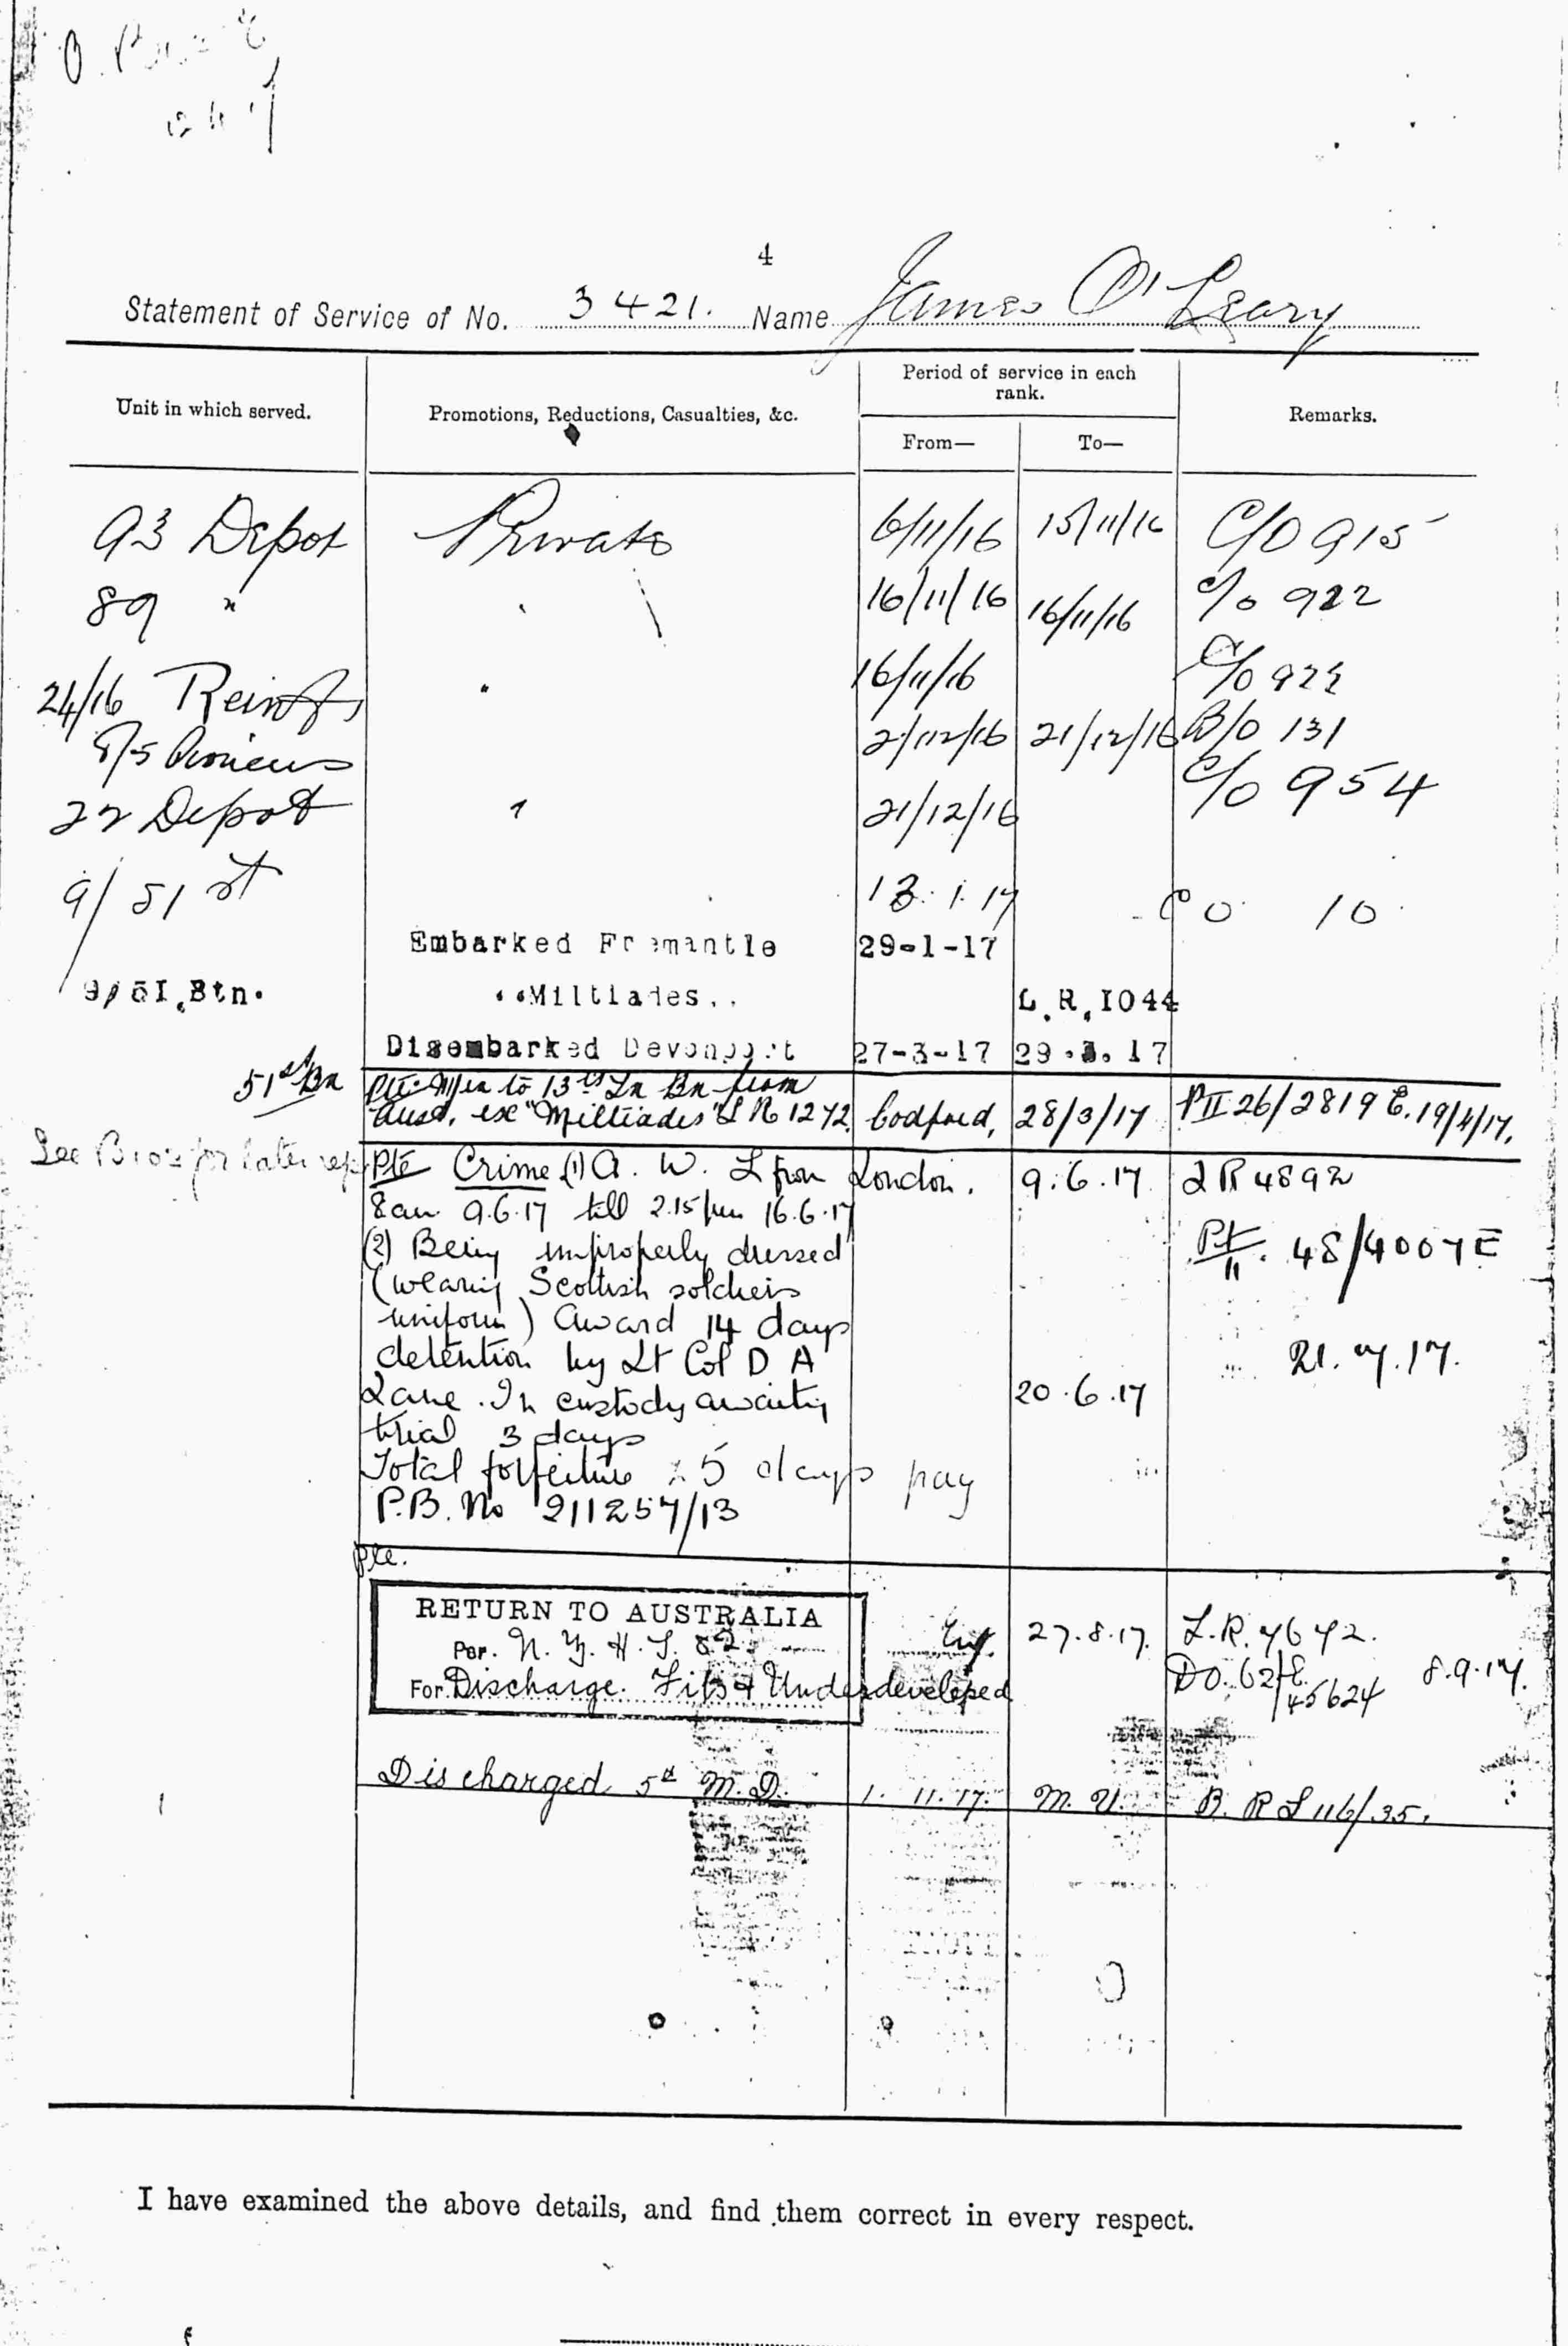 4
Statement of Service of No. 3421. Name James O'Leary
Unit in which served.
Promotions, Reductions, Casualties, &c.
Period of service in each
rank.
From—
To—
Remarks.
93 Depot Private 6/11/16 15/11/16 C/O 915
89 " 16/11/16 16/11/16 C/o 922
24/16 Reinfs " 16/11/16 C/o 922
8/5 Pioneers 2/12/16 21/12/16 B/O 131
22 Depot " 21/12/16 C/o 954
9/51st 13.1.17 C O 10
Embarked Fremantle 29-1-17
9/5I.Btn. "Miltiades" L.R.I044
Disembarked Devonport 27-3-17 29.3.17
51st Bn Pte. M/in to 13th Tn Bn from
Aust. ex "Miltiades" L R 1272. Codford, 28/3/17 PII 26/2819 E. 19/4/17.
See for later
Pte Crime (1) A. W. L from London. 9.6.17 LR 4892
8am 9.6.17 till 2.15pm 16.6.17
(2) Being improperly dressed Pt II. 48/4007E
(wearing Scottish soldiers
uniform) Award 14 days
detention by Lt Col D A 21.7.17.
Lane. In custody awaiting 20.6.17
trial 3 days
Total forfeiture 25 days pay
P.B. No 211257/13
Pte.
RETURN TO AUSTRALIA
Per. N. Z. H. S. 82 Eng. 27.8.17. L.R. 7672.
For Discharge. Fits & Underdeveloped DO. 62/E 45624 8.9.17.
Discharged 5th M.D. 1. 11. 17. M. U. B. R L 116/35.
I have examined the above details, and find them correct in every respect.